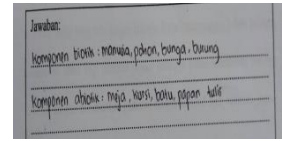 Jawaban:
Komponen biotik : manusia, pohon, bunga, burung
Komponen abiotik : meja, kursi, batu, papan tulis